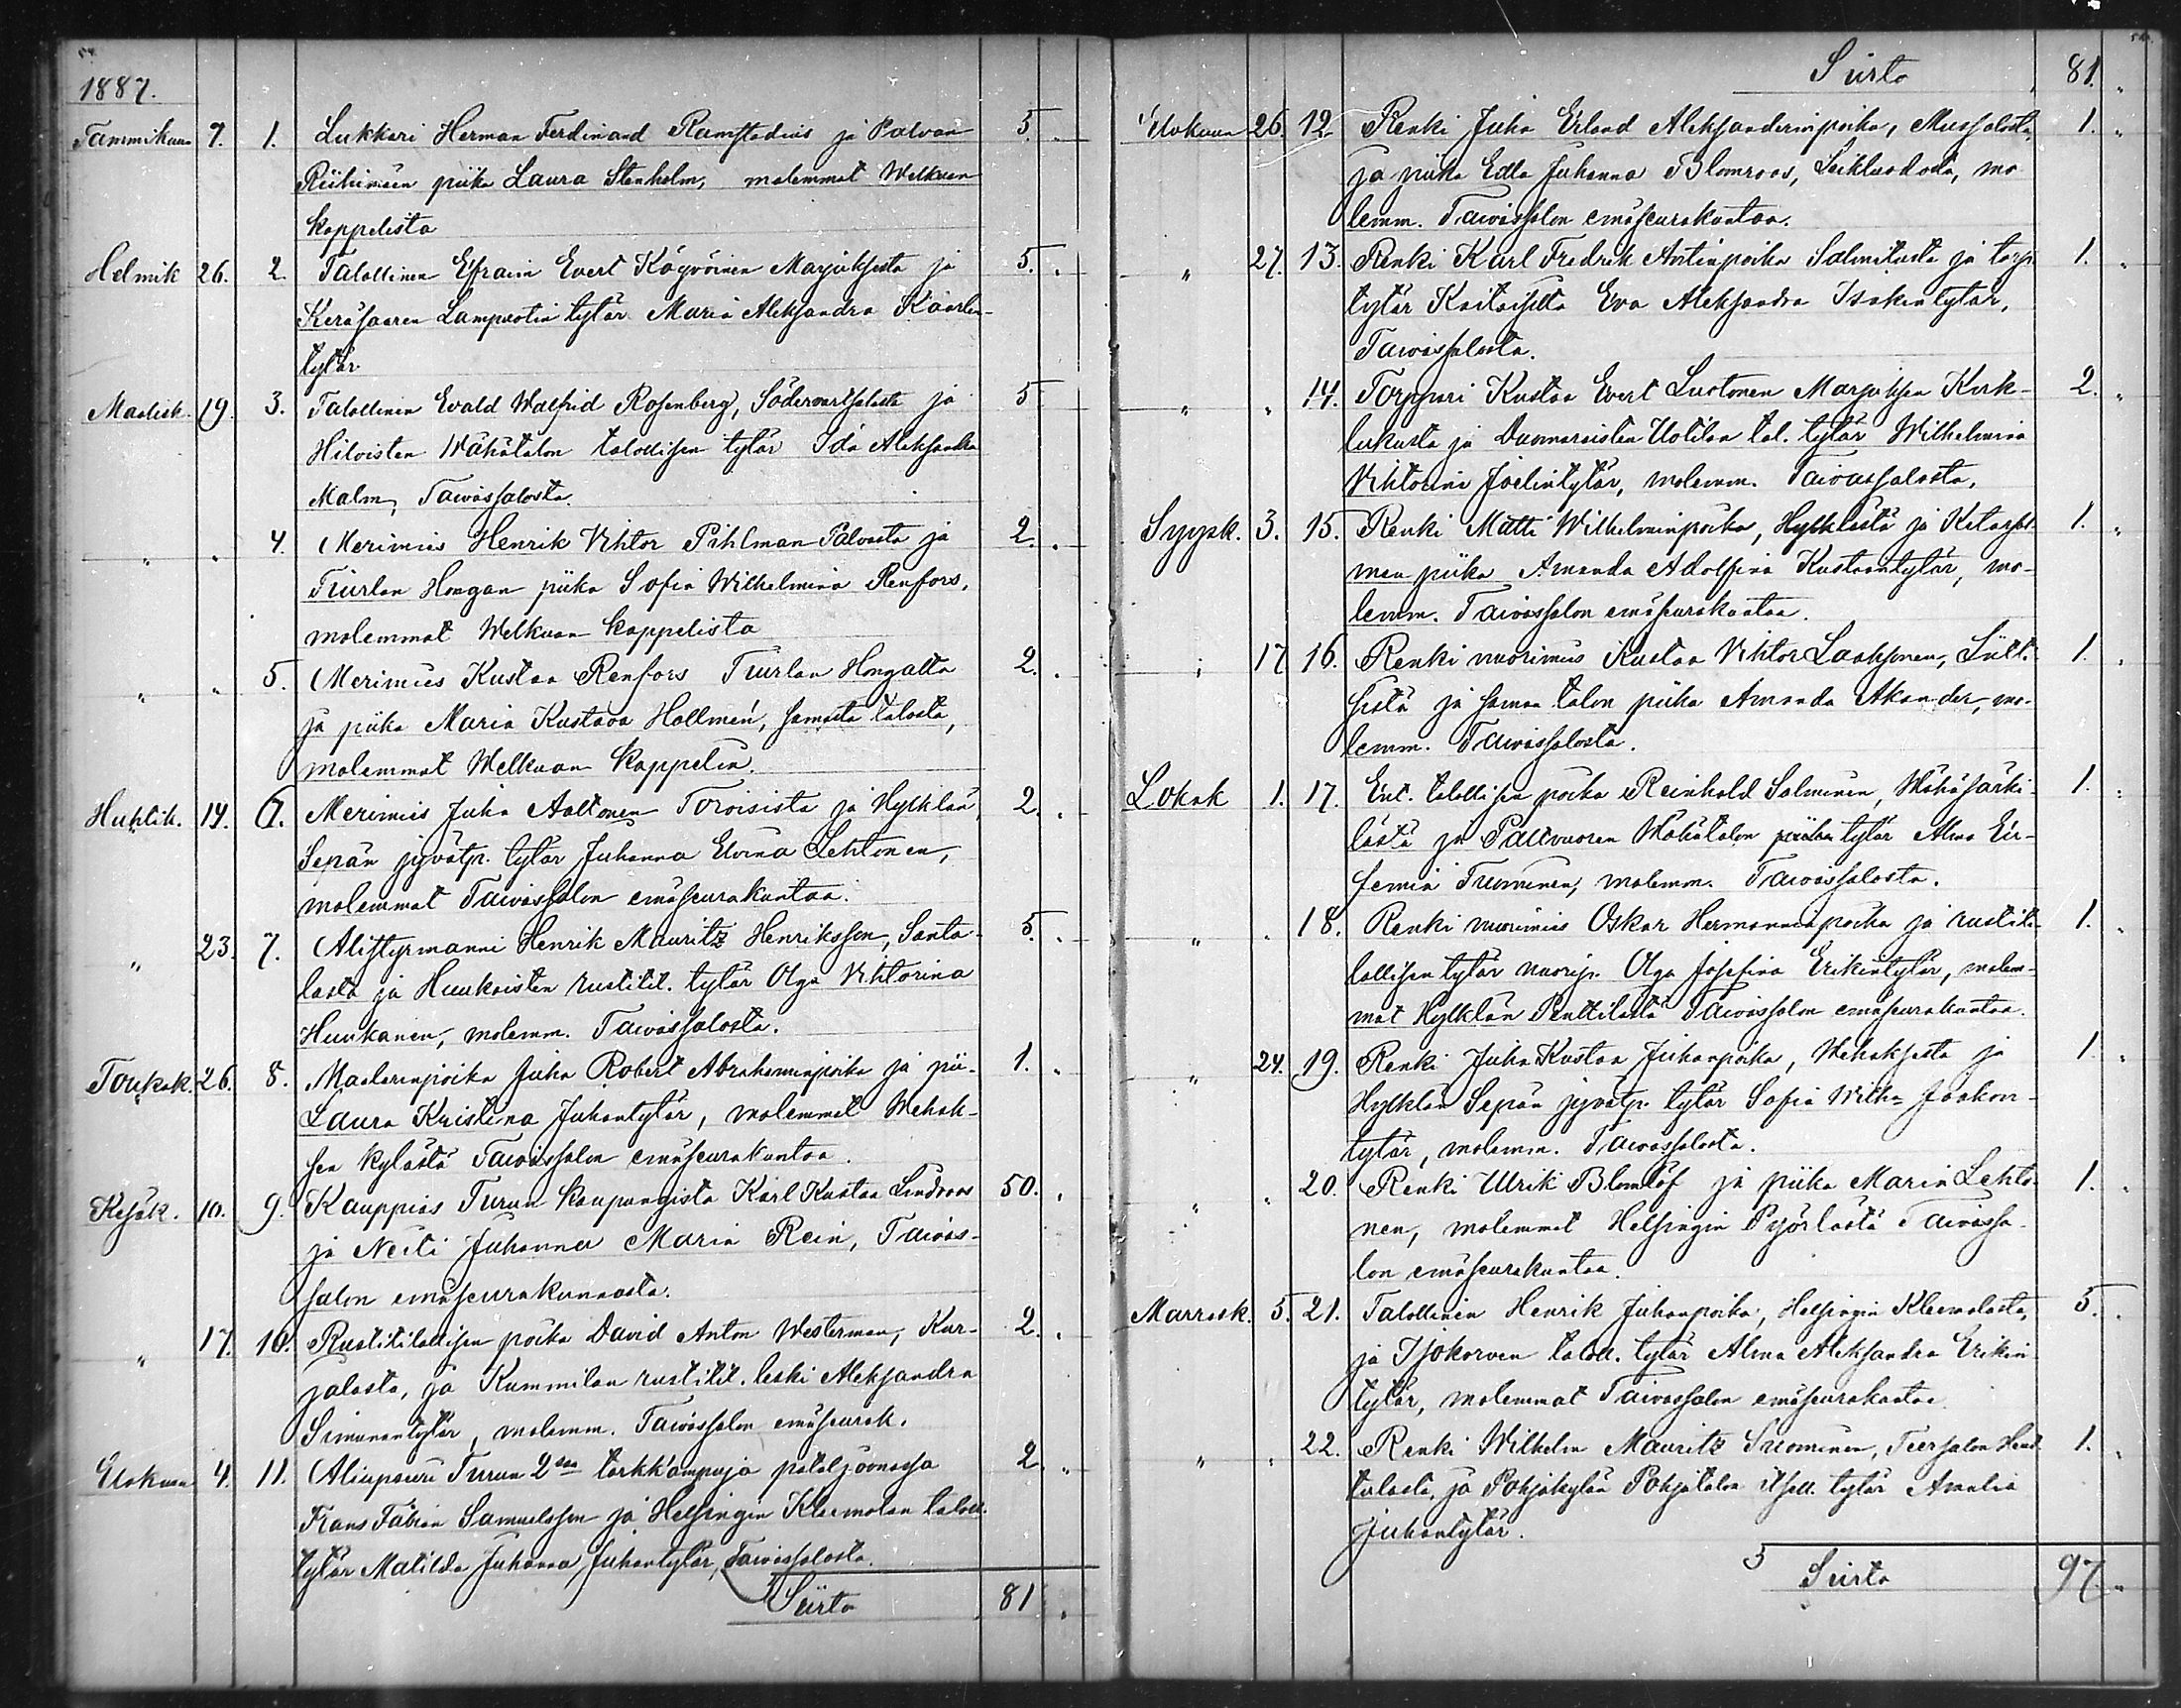 1887.
Tammikuun 7. 1. Lukkari Herman Ferdinand Ramstadius ja Palvan 5. „
Riihimäen piika Laura Stenholm, molemmat Welkuan
kappelista
Helmik 26. 2. Talollinen Efraim Evert Käyväinen Marjuksesta ja 5. „
Keräsaaren Lampuotin tytär Maria Aleksandra Kaarlen-
tytär
Maalisk. 19. 3. Talollinen Evald Walfrid Rosenberg, Södervartsalasta ja 5
Hiloisten Wähätalon talollisen tytär Ida Aleksandra
Malm, Taivassalosta.
„ „ 4. Merimies Henrik Vihtor Pihlman Palvasta ja 2. „
Tiurlan Hongan piika Sofia Wilhelmina Renfors,
molemmat Welkuan kappelista
„ „ 5. Merimies Kustaa Renfors Tiurlan Hongalta 2. „
ja piika Maria Kustava Hallmén, samasta talosta,
molemmat Welkuan kappelia.
Huhtik. 14. 6. Merimies Juha Aaltonen Toroisista ja Hylklän 2. „
Sepän jyvätp. tytär Juhanna Elvina Lehtonen,
molemmat Taivassalon emäseurakuntaa.
„ 23. 7. Alistyrmanni Henrik Mauritz Henriksson, Santa- 5. „
lasta ja Huukaisten rustitil. tytär Olga Vihtorina
Huukanen, molemm. Taivassalosta.
Toukok. 26. 8. Maalarinpoika Juha Robert Abrahaminpoika ja pii- 1. „
Laura Kristina Juhantytär, molemmat Wehak-
sen kylästä Taivassalon emäseurakuntaa.
Kesäk. 10. 9. Kauppias Turun kaupungista Karl Kustaa Lindroos 50. „
ja Neiti Juhanna Maria Rein, Taivas-
salon emäseurakunnasta.
„ 17. 10. Rustitilallisen poika David Anton Westerman, Kur- 2. „
jalasta, ja Kummilan rustitil. leski Aleksandra
Simunantytär, molemm. Taivassalon emäseurak.
Elokuun 4. 11. Aliupseeri Turun 2sen tarkk'ampuja pataljoonassa 2. „
Frans Fabian Samuelsson ja Helsingin Kleemolan taloll.
tytär Matilda Juhanna Juhantytär, Taivassalosta.
Siirto 81 „
Siirto 81. „
Elokuun 26. 12. Renki Juha Erland Aleksanderinpoika, Mussalosta, 1. „
ja piika Edla Juhanna Blomroos, Leikluodosta, mo
lemm. Taivassalon emäseurakuntaa.
„ 27. 13. Renki Karl Fredrik Antinpoika Salmitusta ja torp. 1. „
tytär Kaitarselta Eva Aleksandra Isakintytär,
Taivassalosta.
„ „ 14. Torppari Kustaa Evert Luotonen Marjuksen Kirk- 2. „
lukusta ja Dunnaroisten Uotilan tal. tytär Wilhelmina
Vihtoriina Joelintytär, molemm. Taivassalosta.
Syysk. 3. 15. Renki Matti Wilhelminpoika, Hylklästä ja 1. „
man piika Amanda Adolfina Kustaantytär, mo-
lemm. Taivassalon emäseurakuntaa.
„ 17 16. Renki nuorimies Kustaa Vihtor Laaksonen, 1. „
sistä ja saman talon piika Amanda Akander, mo-
lemm. Taivassalosta.
Lokak 1. 17. Ent. talollisen poika Reinhold Salminen, Wähäsärki- 1. „
lästä ja Pallvuoren Wähätalon tytär Alma Eu-
femia Tuominen, molemm. Taivassalosta.
„ „ 18. Renki nuorimies Oskar Hermanninpoika ja rustiti- 1. „
lallisen tytär nuorip. Olga Josefina Erikintytär, molem-
mat Hylklän Penttilästä Taivassalon emäseurakuntaa.
„ 24. 19. Renki Juha Kustaa Juhanpoika, Wehaksesta ja 1. „
Hylklän Sepän jyvätp. tytär Sofia Wilha Jaakon-
tytär, molemm. Taivassalosta.
„ „ 20. Renki Ulrik Blomlöf ja piika Maria Lehto- 1. „
nen, molemmat Helsingin Pyörlästä Taivassa-
lon emäseurakuntaa.
Marrask. 5. 21. Talollinen Henrik Juhanpoika, Helsingin Kleemolasta, 5. „
ja Isokorven taloll. tytär Alma Aleksandra Erikin-
tytär, molemmat Taivassalon emäseurakuntaa.
„ „ 22. Renki Wilhelm Mauritz Suominen, Teersalon 1. „
ja Pohjakylän Pohjatalon itsell. tytär Amalia
Juhantytär.
Siirto 97. „